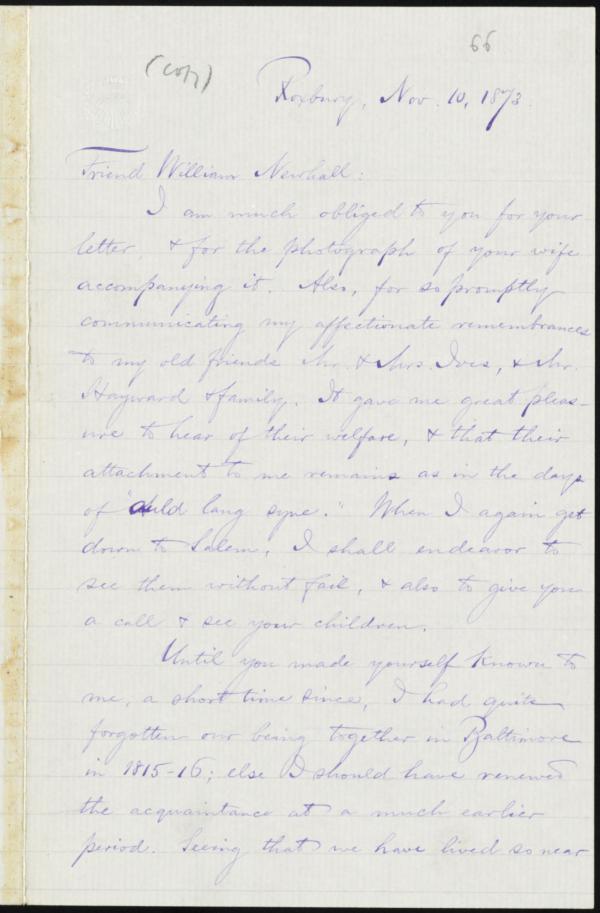 66
(copy)
Roxbury, Nov. 10, 1873.
Friend William Newhall:
I am much obliged to you for your
letter, & for the photograph of your wife
accompanying it. Also, for so promptly
communicating my affectionate remembrances
to my old friends Mr. & Mrs. Ives, & Mr.
Hayward & family. It gave me great pleas-
ure to hear of their welfare, & that their
attachment to me remains as in the days
of "auld lang syne." When I again get
down to Salem, I shall endeavor to
see them without fail, & also to give you
a call & see your children.
Until you made yourself known to
me, a short time since, I had quite
forgotten our being together in Baltimore
in 1815-16; else I should have renewed
the acquaintance at a much earlier
period. Seeing that we have lived so near